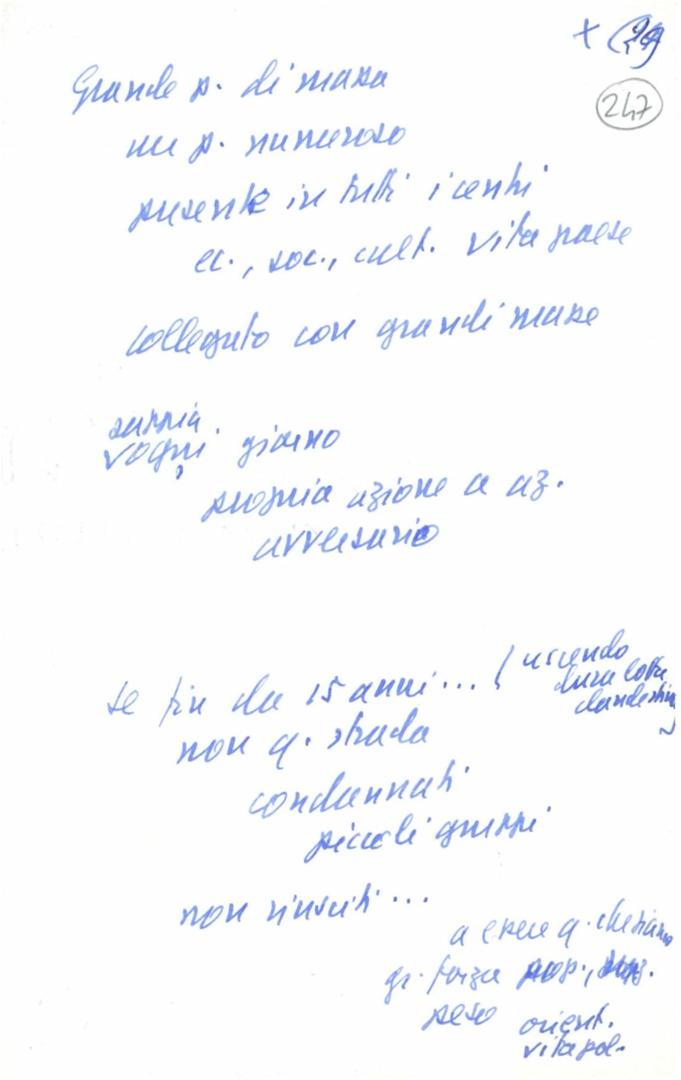 + (29)
247
Grande p. di massa
un p. numeroso
presente in tutti i centri
ec., soc., cult. vita paese
collegato con grandi masse
sappia
ogni giorno
propria azione a az.
avversario
se fin da 15 anni... (uscendo
dura lotta
clandestina)
non q. strada
condannati
piccoli gruppi
non riusciti...
a essere q. che siamo
gr. forza pop.,
peso orient.
vita pol.